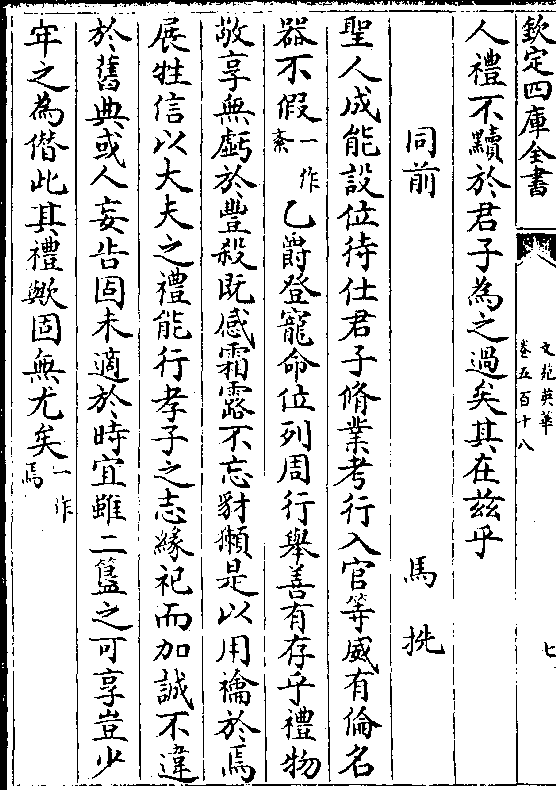 欽定四庫全書
文苑英華
卷五百十八
七
人禮不黷於君子為之過矣其在兹乎
同前
馬挩
聖人成能設位待仕君子脩業考行入官等威有倫名
器不假一作紊乙爵登寵命位列周行舉善有存乎禮物
敬享無虧於豐殺既感霜露不忘豺獺是以用禴於焉
展牲信以大夫之禮能行孝子之志緣祀而加誠不違
於舊典或人妄告固未適於時宜雖二簋之可享豈少
牢之為僭此其禮歟固無尤矣一作焉